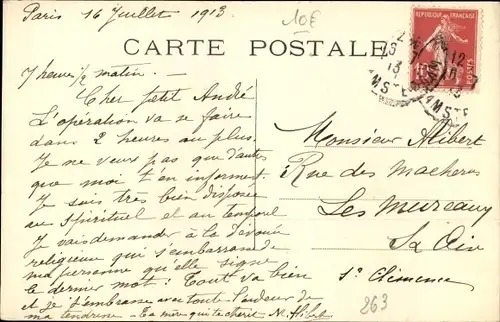 Paris 16 Juillet 1913
10€
CARTE POSTALE
REPUBLIQUE FRANÇAISE
10
POSTES
7 heures ½ matin.
Cher petit André
L'opération va se faire
dans 2 heures au plus.
Je ne veux pas que d'autres
que moi t'en informent.
Je suis très bien disposée
au spirituel et au temporel
Je vais demander à la dévouée
religieuse qui s'embarrasse de
ma personne qu'elle signe
le dernier mot: Tout va bien
et je t'embrasse avec toute l'ardeur de
ma tendresse - Ta mère qui te chérit N. Alibert
Monsieur Alibert
Rue des
Les Mureaux
S. et Oise
Sr Clémence
263